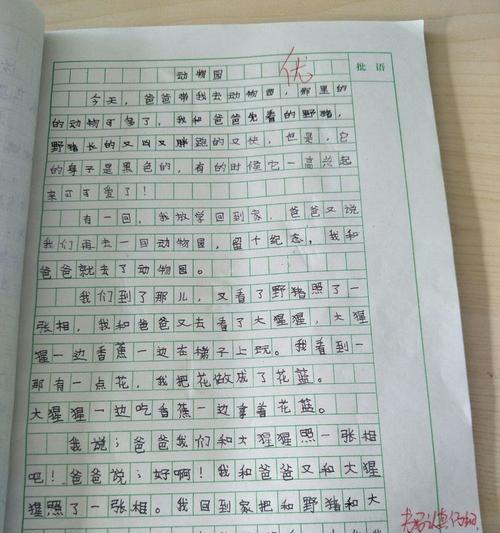 动物园
优
批语
今天，爸爸带我去动物园，那里的
的动物可多了，我和爸爸先看的野猪，
野猪长的又凶又胖跑的又快，但是，它
的身子是黑色的，有的时候它一高兴起
来可可爱了！
有一回，我放学回到家，爸爸又说
我们再去一回动物园，留个纪念，我和
爸爸就去了动物园。
我们到了那儿，又看了野猪照了一
张相，我和爸爸又去看了大猩猩，大猩
猩一边香蕉一边在梯子上玩。我看到一
那有一点花，我把花做成了花蓝。
大猩猩一边吃香蕉一边拿着花蓝。
我说：爸爸我们和大猩猩照一张相
吧！爸爸说：好啊！我和爸爸又和大猩
猩照了一张相。我回到家把和野猪和大
书写认真仔细